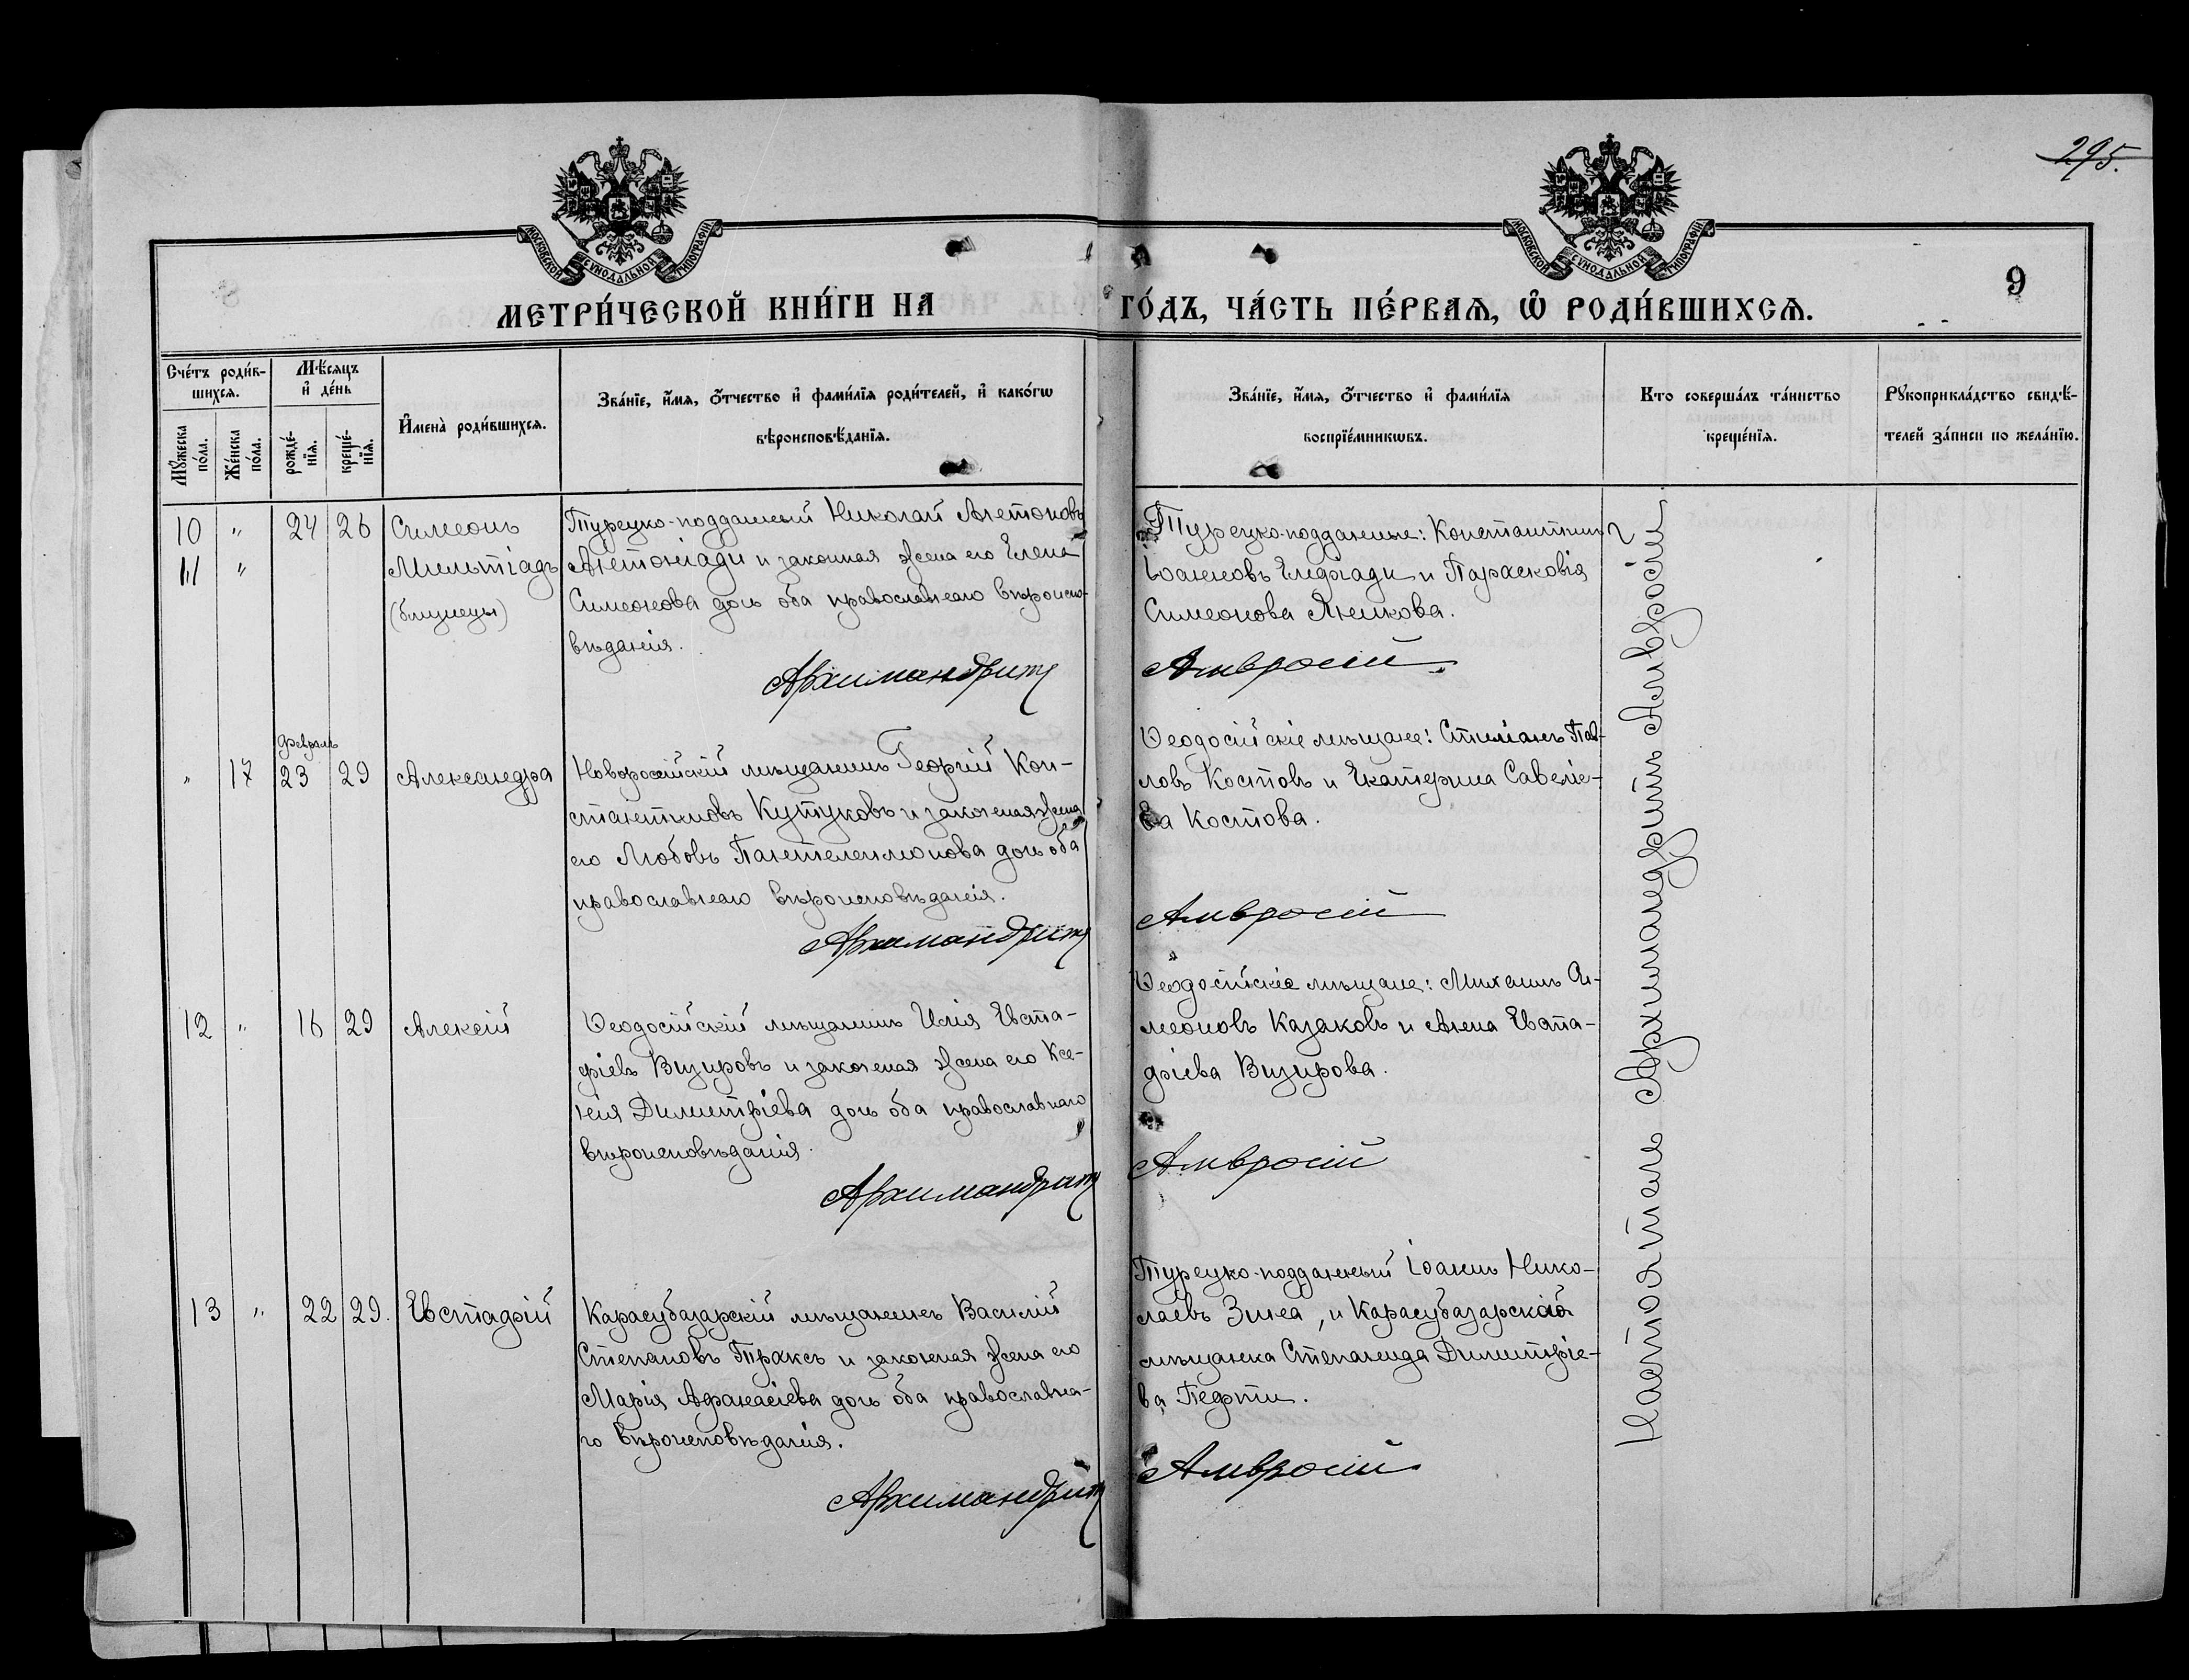 295.
МОСКОВСКОЙ СѴНОДАЛЬНОЙ ТИПОГРАФІИ
МОСКОВСКОЙ СѴНОДАЛЬНОЙ ТИПОГРАФІИ
МЕТРИ́ЧЕСКОЙ КНИ́ГИ НА ГО́ДЪ, ЧА́СТЬ ПЕ́РВАѦ, Ѽ РОДИ́ВШИХСѦ.
9
Сче́тъ роди́в-
шихсѧ.
Мѣ́сяцъ
и҆ де́нь
Мꙋ́жеска
по́ла.
Же́нска
по́ла.
рожде́-
нїѧ.
креще́-
нїѧ.
И҆мена̀ роди́вшихсѧ.
Зва́нїе, и҆́мѧ, ѻ҆́тчество и҆ фами́лїѧ роди́телей, и҆ како́гѡ
вѣроисповѣ́данїѧ.
Зва́нїе, и҆́мѧ, ѻ҆́тчество и҆ фами́лїѧ
воспрїе́мникѡвъ.
Кто соверша́лъ та́инство
креще́нїѧ.
Рꙋкоприкла́дство свидѣ́-
телей за́писи по жела́нїю.
10 " 24 26 Симеонъ
11 " Мильтіадъ
(близнецы)
Турецко-подданный Николай Антоновъ
Антоніади и законная жена его Елена
Симеонова дочь оба православнаго вѣроиспо-
вѣданія.
Архимандритъ
Турецко-подданные: Константинъ
Іоанновъ Елефіади и Парасковія
Симеонова Янчкова.
Амвросій
" 17 Февраль 23 29 Александра
Новоросійскій мѣщанинъ Георгій Кон-
стантиновъ Кутуковъ и законная жена
его Любовь Пантелеимонова дочь оба
православнаго вѣроисповѣданія.
Архимандритъ
Ѳеодосійскіе мѣщане: Стиліанъ Пав-
ловъ Костовъ и Екатерина Савелье-
ва Костова.
Амвросій
12 " 16 29 Алексій
Ѳеодосійскій мѣщанинъ Илія Евста-
фіевъ Визировъ и законная жена его Ксе-
нія Димитріева дочь оба православнаго
вѣроисповѣданія.
Архимандритъ
Ѳеодосійскіе мѣщане: Михаилъ Си-
меоновъ Казаковъ и Анна Евста-
фіева Визирова.
Амвросій
13 " 22 29. Евстафій
Карасубазарскій мѣщанинъ Василій
Степановъ Траксъ и законная жена его
Марія Афанасіева дочь оба православна-
го вѣроисповѣданія.
Архимандритъ
Турецко-подданный Іоаннъ Нико-
лаевъ Зина, и Карасубазарская
мѣщанка Степанида Димитріе-
ва Пефти.
Амвросій
Настоятель Архимандритъ Амвросій